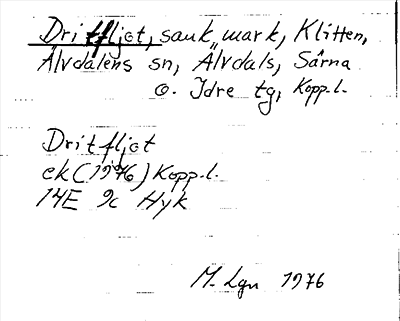 Dritfljot, sank mark, Klitten,
Älvdalens sn, Älvdals, Särna
o. Idre tg, Kopp.l.
Dritfljot
ek (1976) Kopp.l.
14E 9c Hyk
M. Lgn 1976